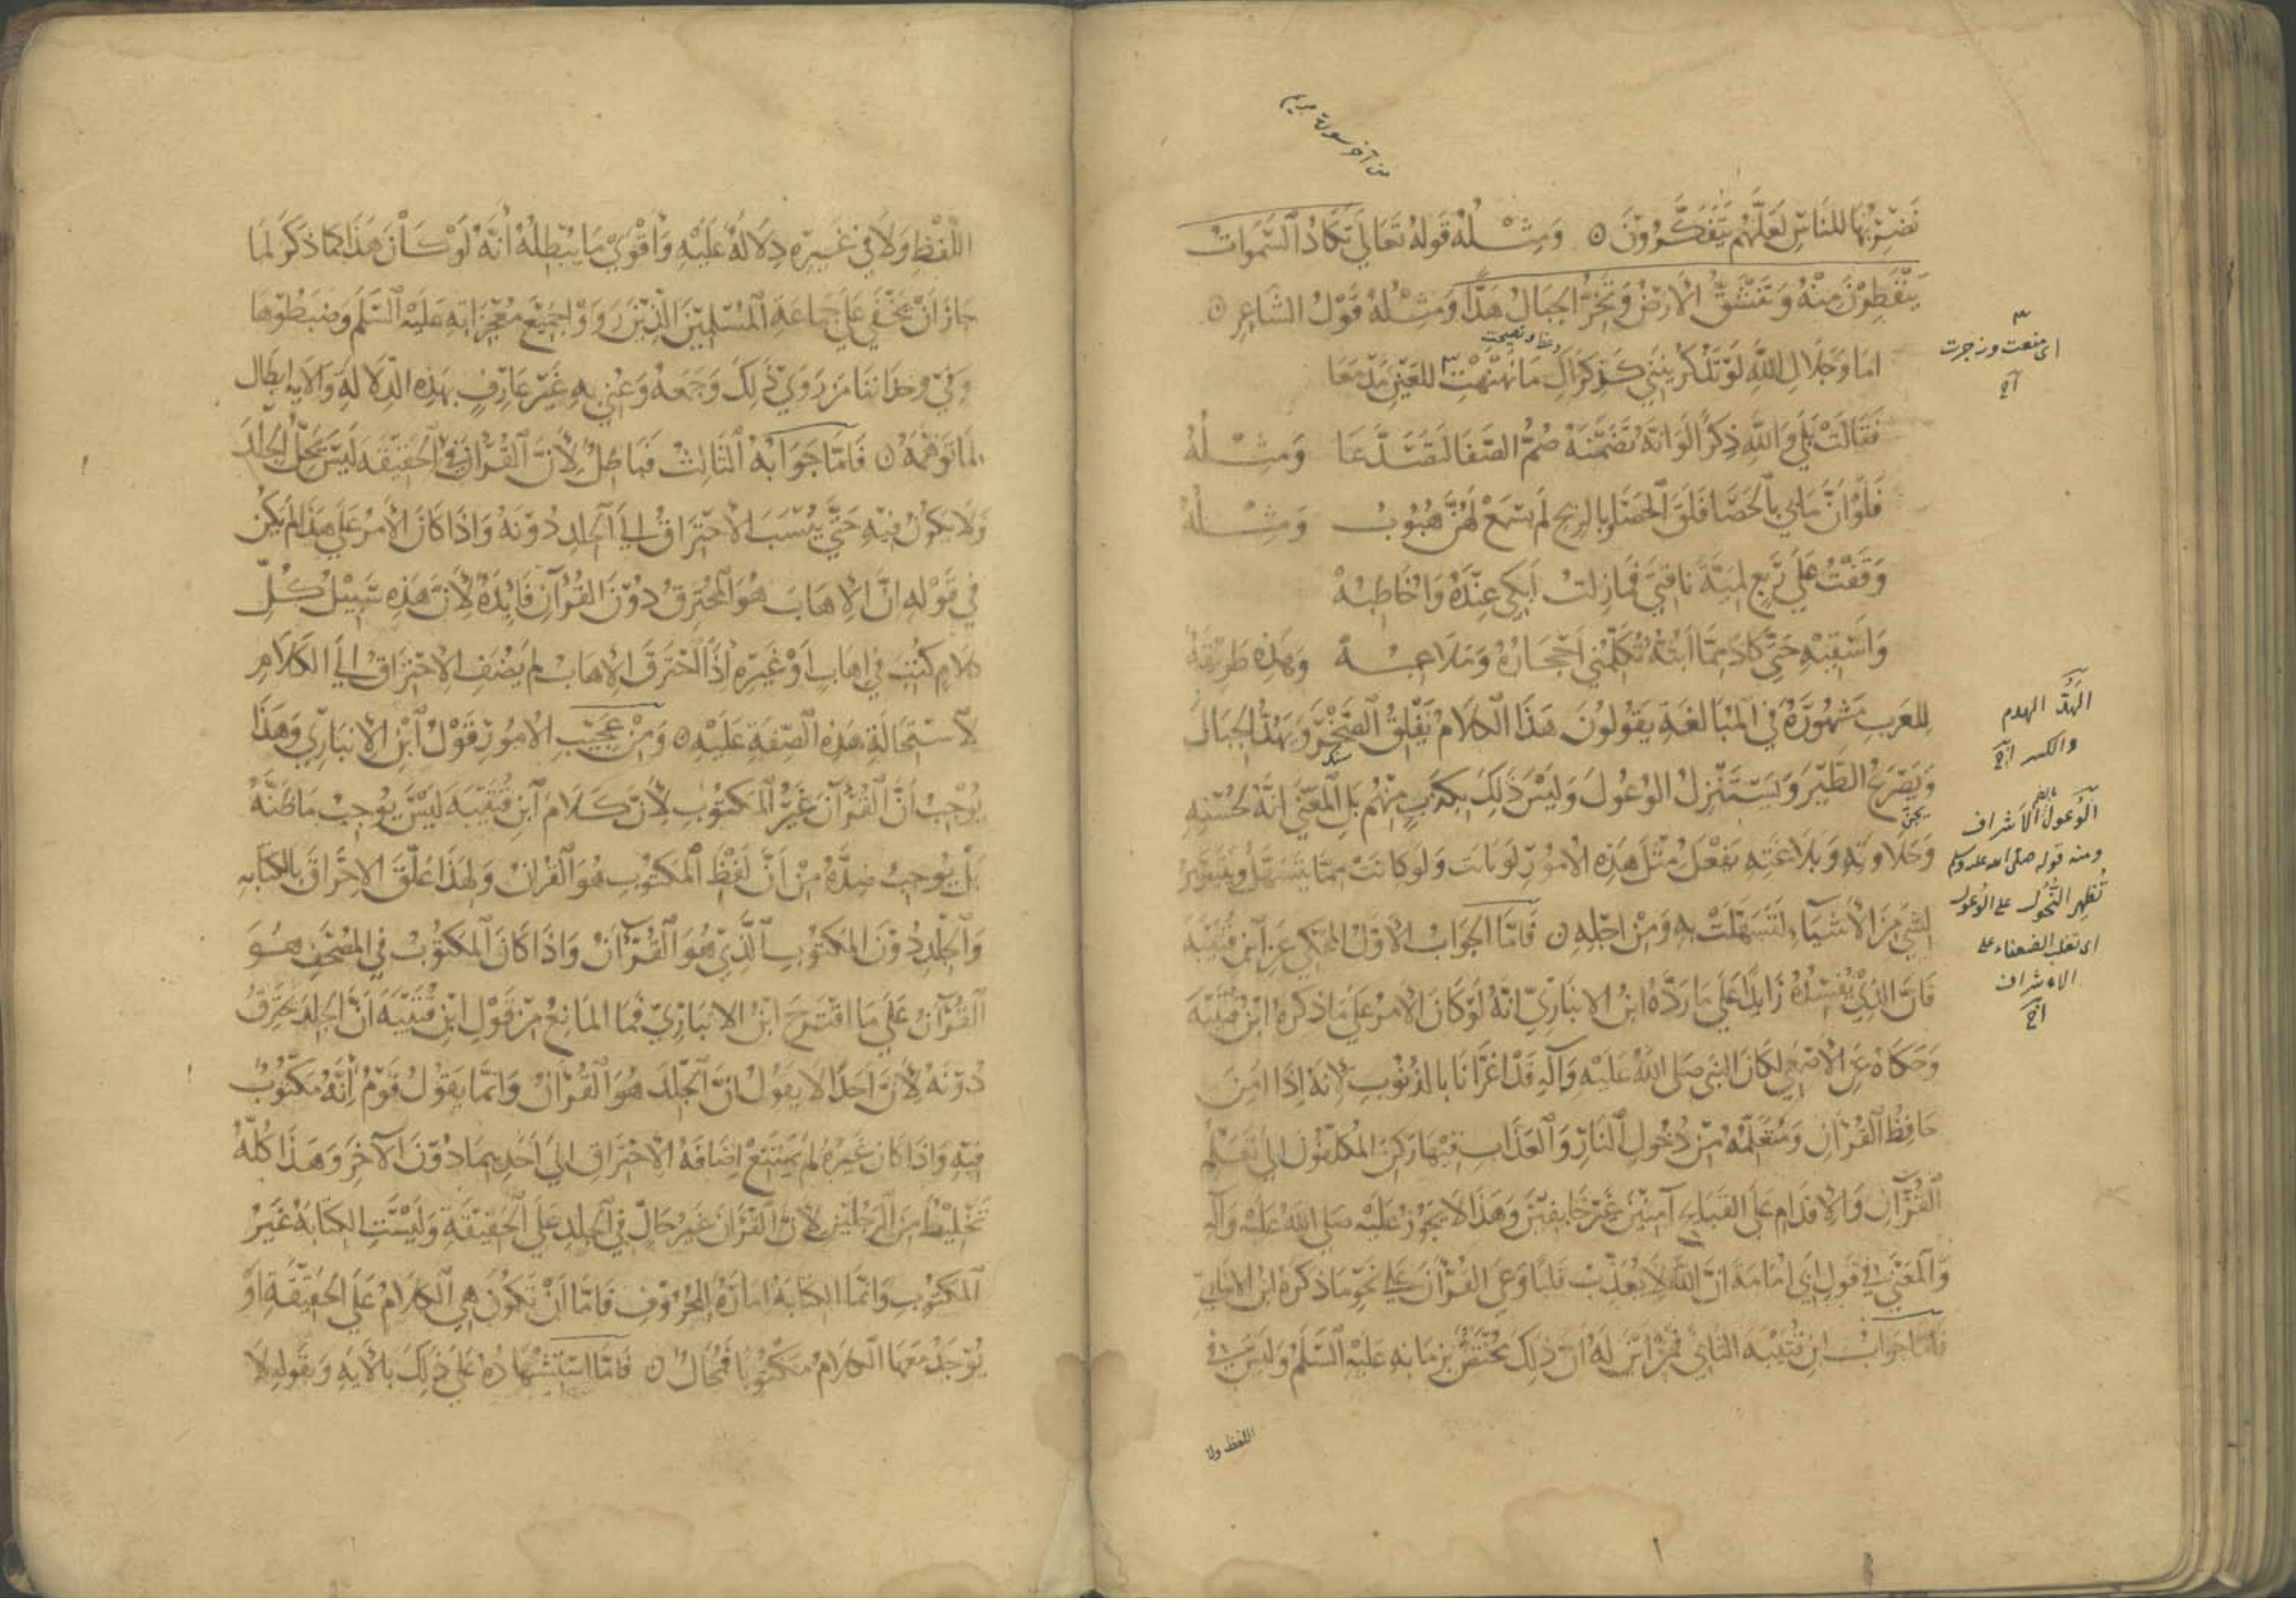 من آخر سورة مريم
نَضْرِبُهَا لِلنَّاسِ لَعَلَّهُمْ يَتَفَكَّرُونَ ۝ وَمِثْلُهُ قَوْلُهُ تَعَالَى تَكَادُ السَّمَوَاتُ
يَنْفَطِرْنَ مِنْهُ وَتَنْشَقُّ الْأَرْضُ وَتَخِرُّ الْجِبَالُ هَدًّا وَمِثْلُهُ قَوْلُ الشَّاعِرِ ۝
اما وَجَلَالِ اللَّهِ لَوْ تَذْكُرِينَنِي كَذِكْرَاكِ مَا نَهْنَهْتِ لِلْعَيْنِ مَدْمَعَا
فَقَالَتْ بَلَى وَاللَّهِ ذِكْرًا لَوَ انَّهُ تَضَمَّنَهُ صُمُّ الصَّفَا لَتَصَدَّعَا وَمِثْلُهُ
فَلَوْ أَنَّ مَا بِي بِالْحَصَا فَلَقَ الْحَصَا وَبِالرِّيحِ لَمْ يُسْمَعْ لَهُنَّ هُبُوبُ وَمِثْلُهُ
وَقَفْتُ عَلَى رَبْعٍ لِمَيَّةَ نَاقَتِي فَمَا زِلْتُ أَبْكِي عِنْدَهُ وَأُخَاطِبُهْ
وَأَسْقِيهِ حَتَّى كَادَ مِمَّا أَبُثُّهُ تُكَلِّمُنِي أَحْجَارُهُ وَمَلَاعِبُهْ وَهَذِهِ طَرِيقَةٌ
لِلعَرَبِ مَشْهُورَةٌ فِي الْمُبَالَغَةِ يَقُولُونَ هَذَا الْكَلَامُ يَفْلِقُ الصَّخْرَ وَيَهُدُّ الْجِبَالَ
وَيَصْرَعُ الطَّيْرَ وَيَسْتَنْزِلُ الْوُعُولَ وَلَيْسَ ذَلِكَ بِكَذِبٍ مِنْهُمْ بَلِ الْمَعْنَى انَّهُ لِحُسْنِهِ
وَحَلَاوَتِهِ وَبَلَاغَتِهِ يَفْعَلُ مِثْلَ هَذِهِ الْأُمُورِ لَوْ بَانَتْ وَلَوْ كَانَتْ مِمَّا يَتَسَهَّلُ وَيَتَيَسَّرُ
لِشَيْءٍ مِنَ الْأَشْيَاءِ لَتَسَهَّلَتْ بِهِ وَمِنْ أَجْلِهِ ۝ فَأَمَّا الْجَوَابُ الْأَوَّلُ الْمَحْكِيُّ عَنِ ابْنِ قُتَيْبَةَ
فَإِنَّ الَّذِي يُفْسِدُهُ زَائِدًا عَلَى مَا رَدَّهُ ابْنُ الْأَنْبَارِيِّ انَّهُ لَوْ كَانَ الْأَمْرُ عَلَى مَا ذَكَرَهُ ابْنُ قُتَيْبَةَ
وَحَكَاهُ عَنِ الْأَصْمَعِيِّ لَكَانَ النَّبِيُّ صَلَّى اللَّهُ عَلَيْهِ وَآلِهِ قَدْ أَغْرَانَا بِالذُّنُوبِ لِأَنَّهُ إِذَا أَمِنَ
حَافِظُ الْقُرْآنِ وَمُتَعَلِّمُهُ مِنْ دُخُولِ النَّارِ وَالْعَذَابِ فِيهَا رَكَنَ الْمُكَلَّفُونَ إِلَى تَعَلُّمِ
الْقُرْآنِ وَالْإِقْدَامِ عَلَى الْقَبَائِحِ آمِنِينَ غَيْرَ خَائِفِينَ وَهَذَا لَا يَجُوزُ عَلَيْهِ صَلَّى اللَّهُ عَلَيْهِ وَآلِهِ
وَالْمَعْنَى فِي قَوْلِ أَبِي أُمَامَةَ انَّ اللَّهَ لَا يُعَذِّبُ قَلْبًا وَعَى الْقُرْآنَ عَلَى نَحْوِ مَا ذَكَرَهُ ابْنُ الْأَنْبَارِيِّ
فَأَمَّا جَوَابُ ابْنِ قُتَيْبَةَ الثَّانِي فَمِنْ أَيْنَ لَهُ أَنَّ ذَلِكَ مُخْتَصٌّ بِزَمَانِهِ عَلَيْهِ السَّلَمُ وَلَيْسَ فِي
اللفظ ولا
اى منعت وزجرت
الهَدّ الهدم
والكسر
الوعول الاشراف
ومنه قوله صلى الله عليه وسلم
تُظهر التُّحُوت على الوُعول
اى تغلب الضعفاء على
الاشراف
اللَّفْظِ وَلَا فِي غَيْرِهِ دِلَالَةٌ عَلَيْهِ وَأَقْوَى مَا يُبْطِلُهُ أَنَّهُ لَوْ كَانَ هَذَا كَمَا ذَكَرَ لَمَا
جَازَ أَنْ يَخْفَى عَلَى جَمَاعَةِ الْمُسْلِمِينَ الَّذِينَ رَوَوْا جَمِيعَ مُعْجِزَاتِهِ عَلَيْهِ السَّلَمُ وَضَبَطُوهَا
وَفِي وِجْدَانِنَا مَنْ رَوَى ذَلِكَ وَجَمَعَهُ وَعُنِيَ بِهِ غَيْرَ عَارِفٍ بِهَذِهِ الدِّلَالَةِ وَالْآيَةِ ابْطَالٌ
لِمَا تَوَهَّمَهُ ۝ فَأَمَّا جَوَابُهُ الثَّالِثُ فَبَاطِلٌ لِأَنَّ الْقُرْآنَ فِي الْحَقِيقَةِ لَيْسَ يَحُلُّ الْجِلْدَ
وَلَا يَكُونُ فِيهِ حَتَّى يُنْسَبَ الْاحْتِرَاقُ إِلَى الْجِلْدِ دُونَهُ وَإِذَا كَانَ الْأَمْرُ عَلَى هَذَا لَمْ يَكُنْ
فِي قَوْلِهِ انَّ الْإِهَابَ هُوَ الْمُحْتَرِقُ دُونَ الْقُرْآنِ فَائِدَةٌ لِأَنَّ هَذِهِ سَبِيلُ كُلِّ
كَلَامٍ كُتِبَ فِي إِهَابٍ أَوْ غَيْرِهِ إِذَا احْتَرَقَ الْإِهَابُ لَمْ يُضَفِ الْاحْتِرَاقُ إِلَى الْكَلَامِ
لِاسْتِحَالَةِ هَذِهِ الصِّفَةِ عَلَيْهِ ۝ وَمِنْ عَجِيبِ الْأُمُورِ قَوْلُ ابْنِ الْأَنْبَارِيِّ وَهَذَا
يُوجِبُ أَنَّ الْقُرْآنَ غَيْرُ الْمَكْتُوبِ لِأَنَّ كَلَامَ ابْنِ قُتَيْبَةَ لَيْسَ يُوجِبُ مَا ظَنَّهُ
بَلْ يُوجِبُ ضِدَّهُ مِنْ أَنَّ لَفْظَ الْمَكْتُوبِ هُوَ الْقُرْآنُ وَلِهَذَا عَلَّقَ الْاحْتِرَاقَ بِالْكِتَابَةِ
وَالْجِلْدِ دُونَ الْمَكْتُوبِ الَّذِي هُوَ الْقُرْآنُ وَإِذَا كَانَ الْمَكْتُوبُ فِي الْمُصْحَفِ هُوَ
الْقُرْآنُ عَلَى مَا اقْتَرَحَ ابْنُ الْأَنْبَارِيِّ فَمَا الْمَانِعُ مِنْ قَوْلِ ابْنِ قُتَيْبَةَ أَنَّ الْجِلْدَ يَحْتَرِقُ
دُونَهُ لِأَنَّ أَحَدًا لَا يَقُولُ انَّ الْجِلْدَ هُوَ الْقُرْآنُ وَإِنَّمَا يَقُولُ قَوْمٌ إِنَّهُ مَكْتُوبٌ
فِيهِ وَإِذَا كَانَ غَيْرَهُ لَمْ يَمْتَنِعْ إِضَافَةُ الْاحْتِرَاقِ إِلَى أَحَدِهِمَا دُونَ الْآخَرِ وَهَذَا كُلُّهُ
تَخْلِيطٌ مِنَ الرَّجُلَيْنِ لِأَنَّ الْقُرْآنَ غَيْرُ حَالٍّ فِي الْجِلْدِ عَلَى الْحَقِيقَةِ وَلَيْسَتِ الْكِتَابَةُ غَيْرُ
الْمَكْتُوبِ وَإِنَّمَا الْكِتَابَةُ أَمَارَةٌ لِلْحُرُوفِ فَأَمَّا أَنْ تَكُونَ هِيَ الْكَلَامُ عَلَى الْحَقِيقَةِ أَوْ
يُوجَدُ مَعَهَا الْكَلَامُ مَكْتُوبًا فَمُحَالٌ ۝ فَأَمَّا اسْتِشْهَادُهُ عَلَى ذَلِكَ بِالْآيَةِ وَبِقَوْلِهِ لَا